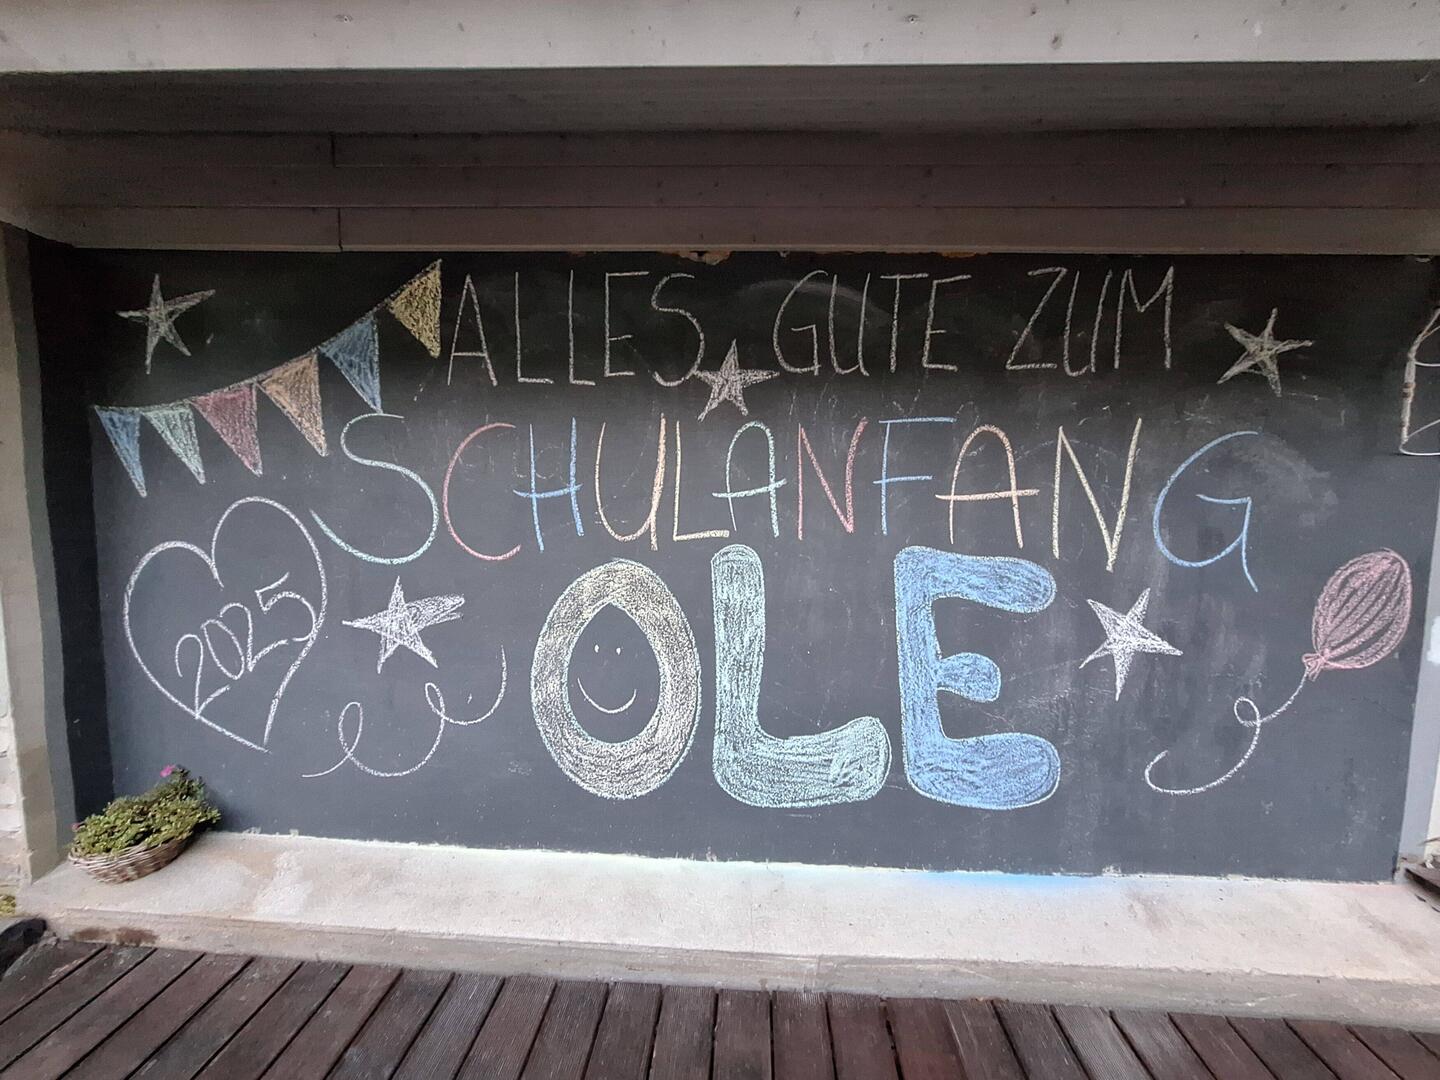 ALLES GUTE ZUM
SCHULANFANG
OLE
2025